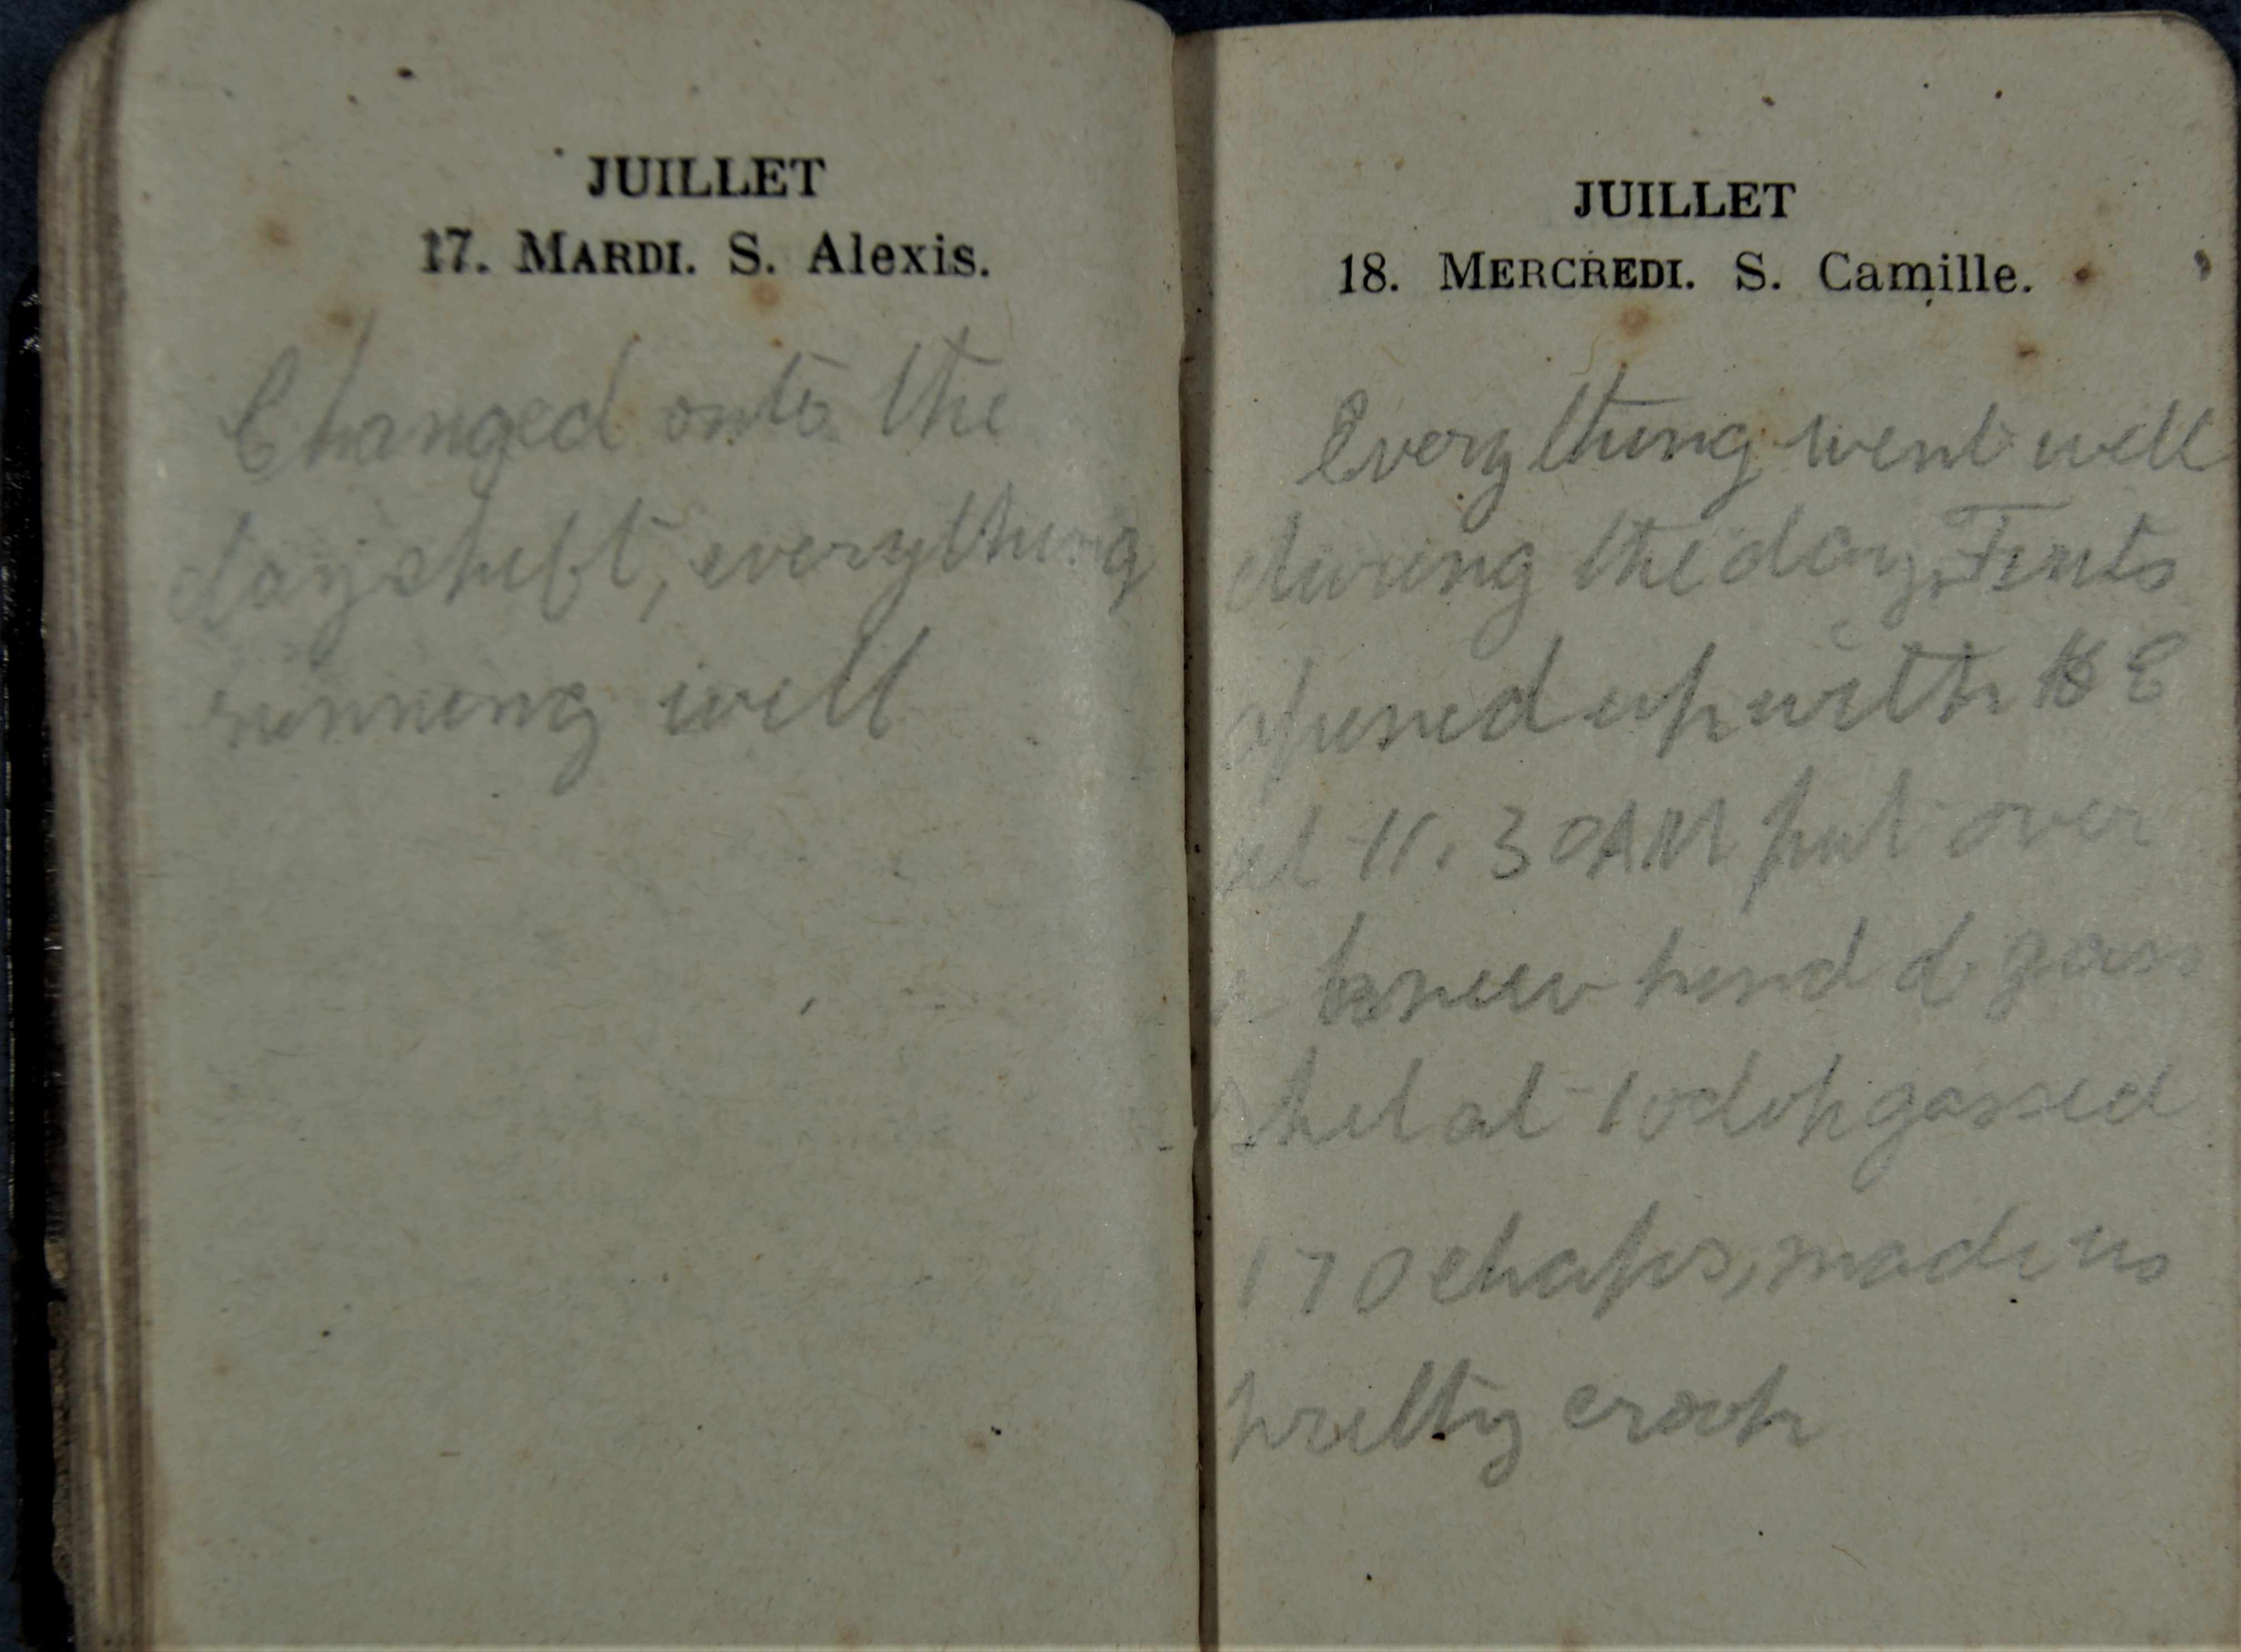 JUILLET
17. MARDI. S. Alexis.
Changed onto the
dayshift, everything
running well
JUILLET
18. MERCREDI. S. Camille.
Everything went well
during the day, Fritz
opened up with H E
at 11.30AM put over
a new kind of gas
shel at
gassed
170 chaps, made us
pretty crook